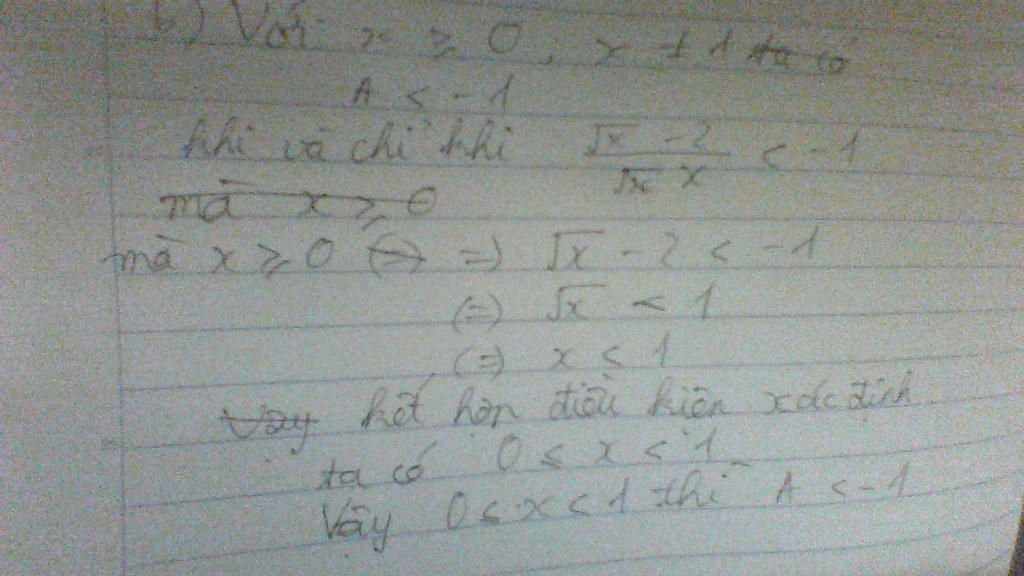 b) Với x ≥ 0, x ≠ 1 ta có
A < -1
khi và chỉ khi √x - 2 / √x x < -1
mà x ≥ 0
mà x ≥ 0 (=) =) √x - 2 < -1
(=) √x < 1
(=) x ≤ 1
Vậy kết hợp điều kiện xác định
ta có 0 ≤ x < 1
Vậy 0 ≤ x < 1 thì A < -1